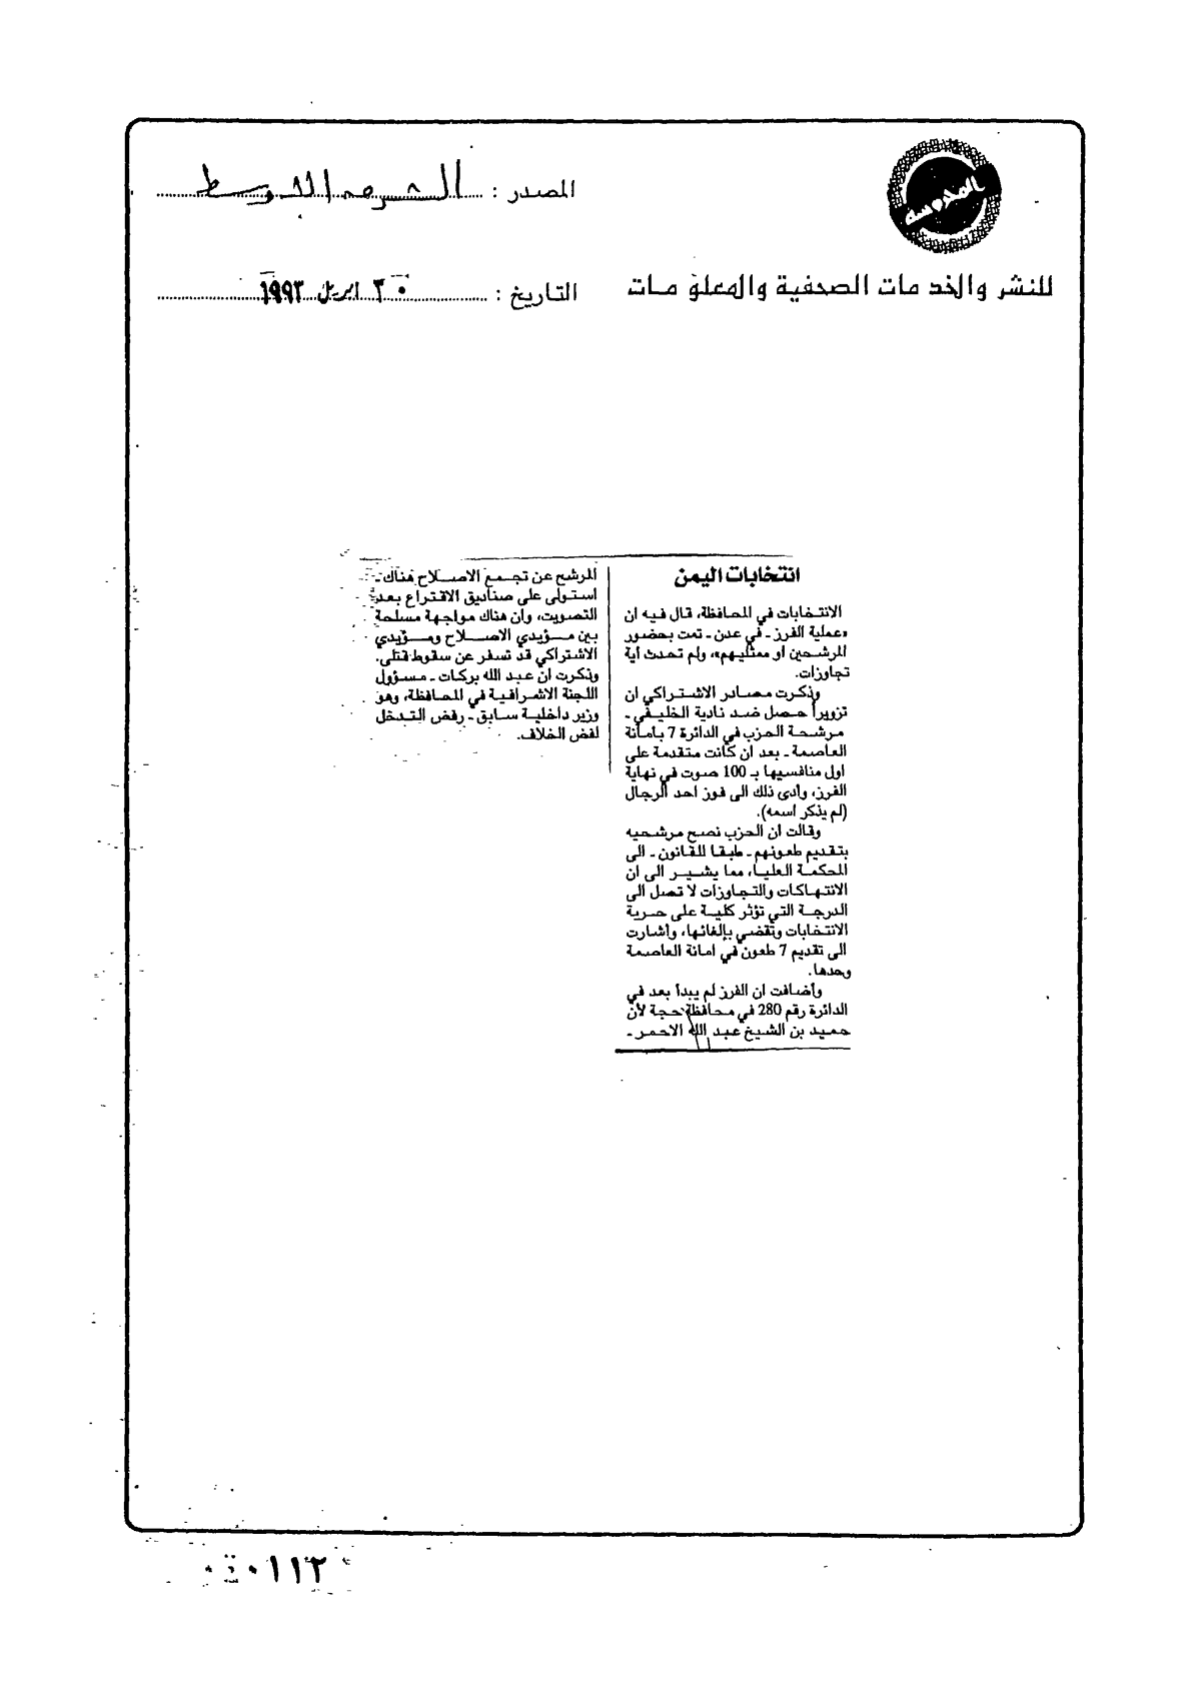 المحروسة
للنشر والخدمات الصحفية والمعلومات
المصدر : الشرق الأوسط
التاريخ : ٣٠ ابريل ١٩٩٣
انتخابات اليمن
الانتخابات في المحافظة، قال فيه ان
«عملية الفرز ـ في عدن ـ تمت بحضور
المرشحين او ممثليهم»، ولم تحدث أية
تجاوزات.
وذكرت مصادر الاشتراكي ان
تزويراً حصل ضد نادية الخليفي ـ
مرشحة الحزب في الدائرة 7 بأمانة
العاصمة ـ بعد ان كانت متقدمة على
اول منافسيها بـ 100 صوت في نهاية
الفرز، وادى ذلك الى فوز احد الرجال
(لم يذكر اسمه).
وقالت ان الحزب نصح مرشحيه
بتقديم طعونهم ـ طبقا للقانون ـ الى
المحكمة العليا، مما يشير الى ان
الانتهاكات والتجاوزات لا تصل الى
الدرجة التي تؤثر كلية على حرية
الانتخابات وتقضي بإلغائها، وأشارت
الى تقديم 7 طعون في امانة العاصمة
وحدها.
وأضافت ان الفرز لم يبدأ بعد في
الدائرة رقم 280 في محافظة حجة لأن
حميد بن الشيخ عبد الله الاحمر ـ
المرشح عن تجمع الاصلاح هناك ـ
استولى على صناديق الاقتراع بعد
التصويت، وان هناك مواجهة مسلحة
بين مؤيدي الاصلاح ومؤيدي
الاشتراكي قد تسفر عن سقوط قتلى.
وذكرت ان عبد الله بركات ـ مسؤول
اللجنة الاشرافية في المحافظة، وهو
وزير داخلية سابق ـ رفض التدخل
لفض الخلاف.